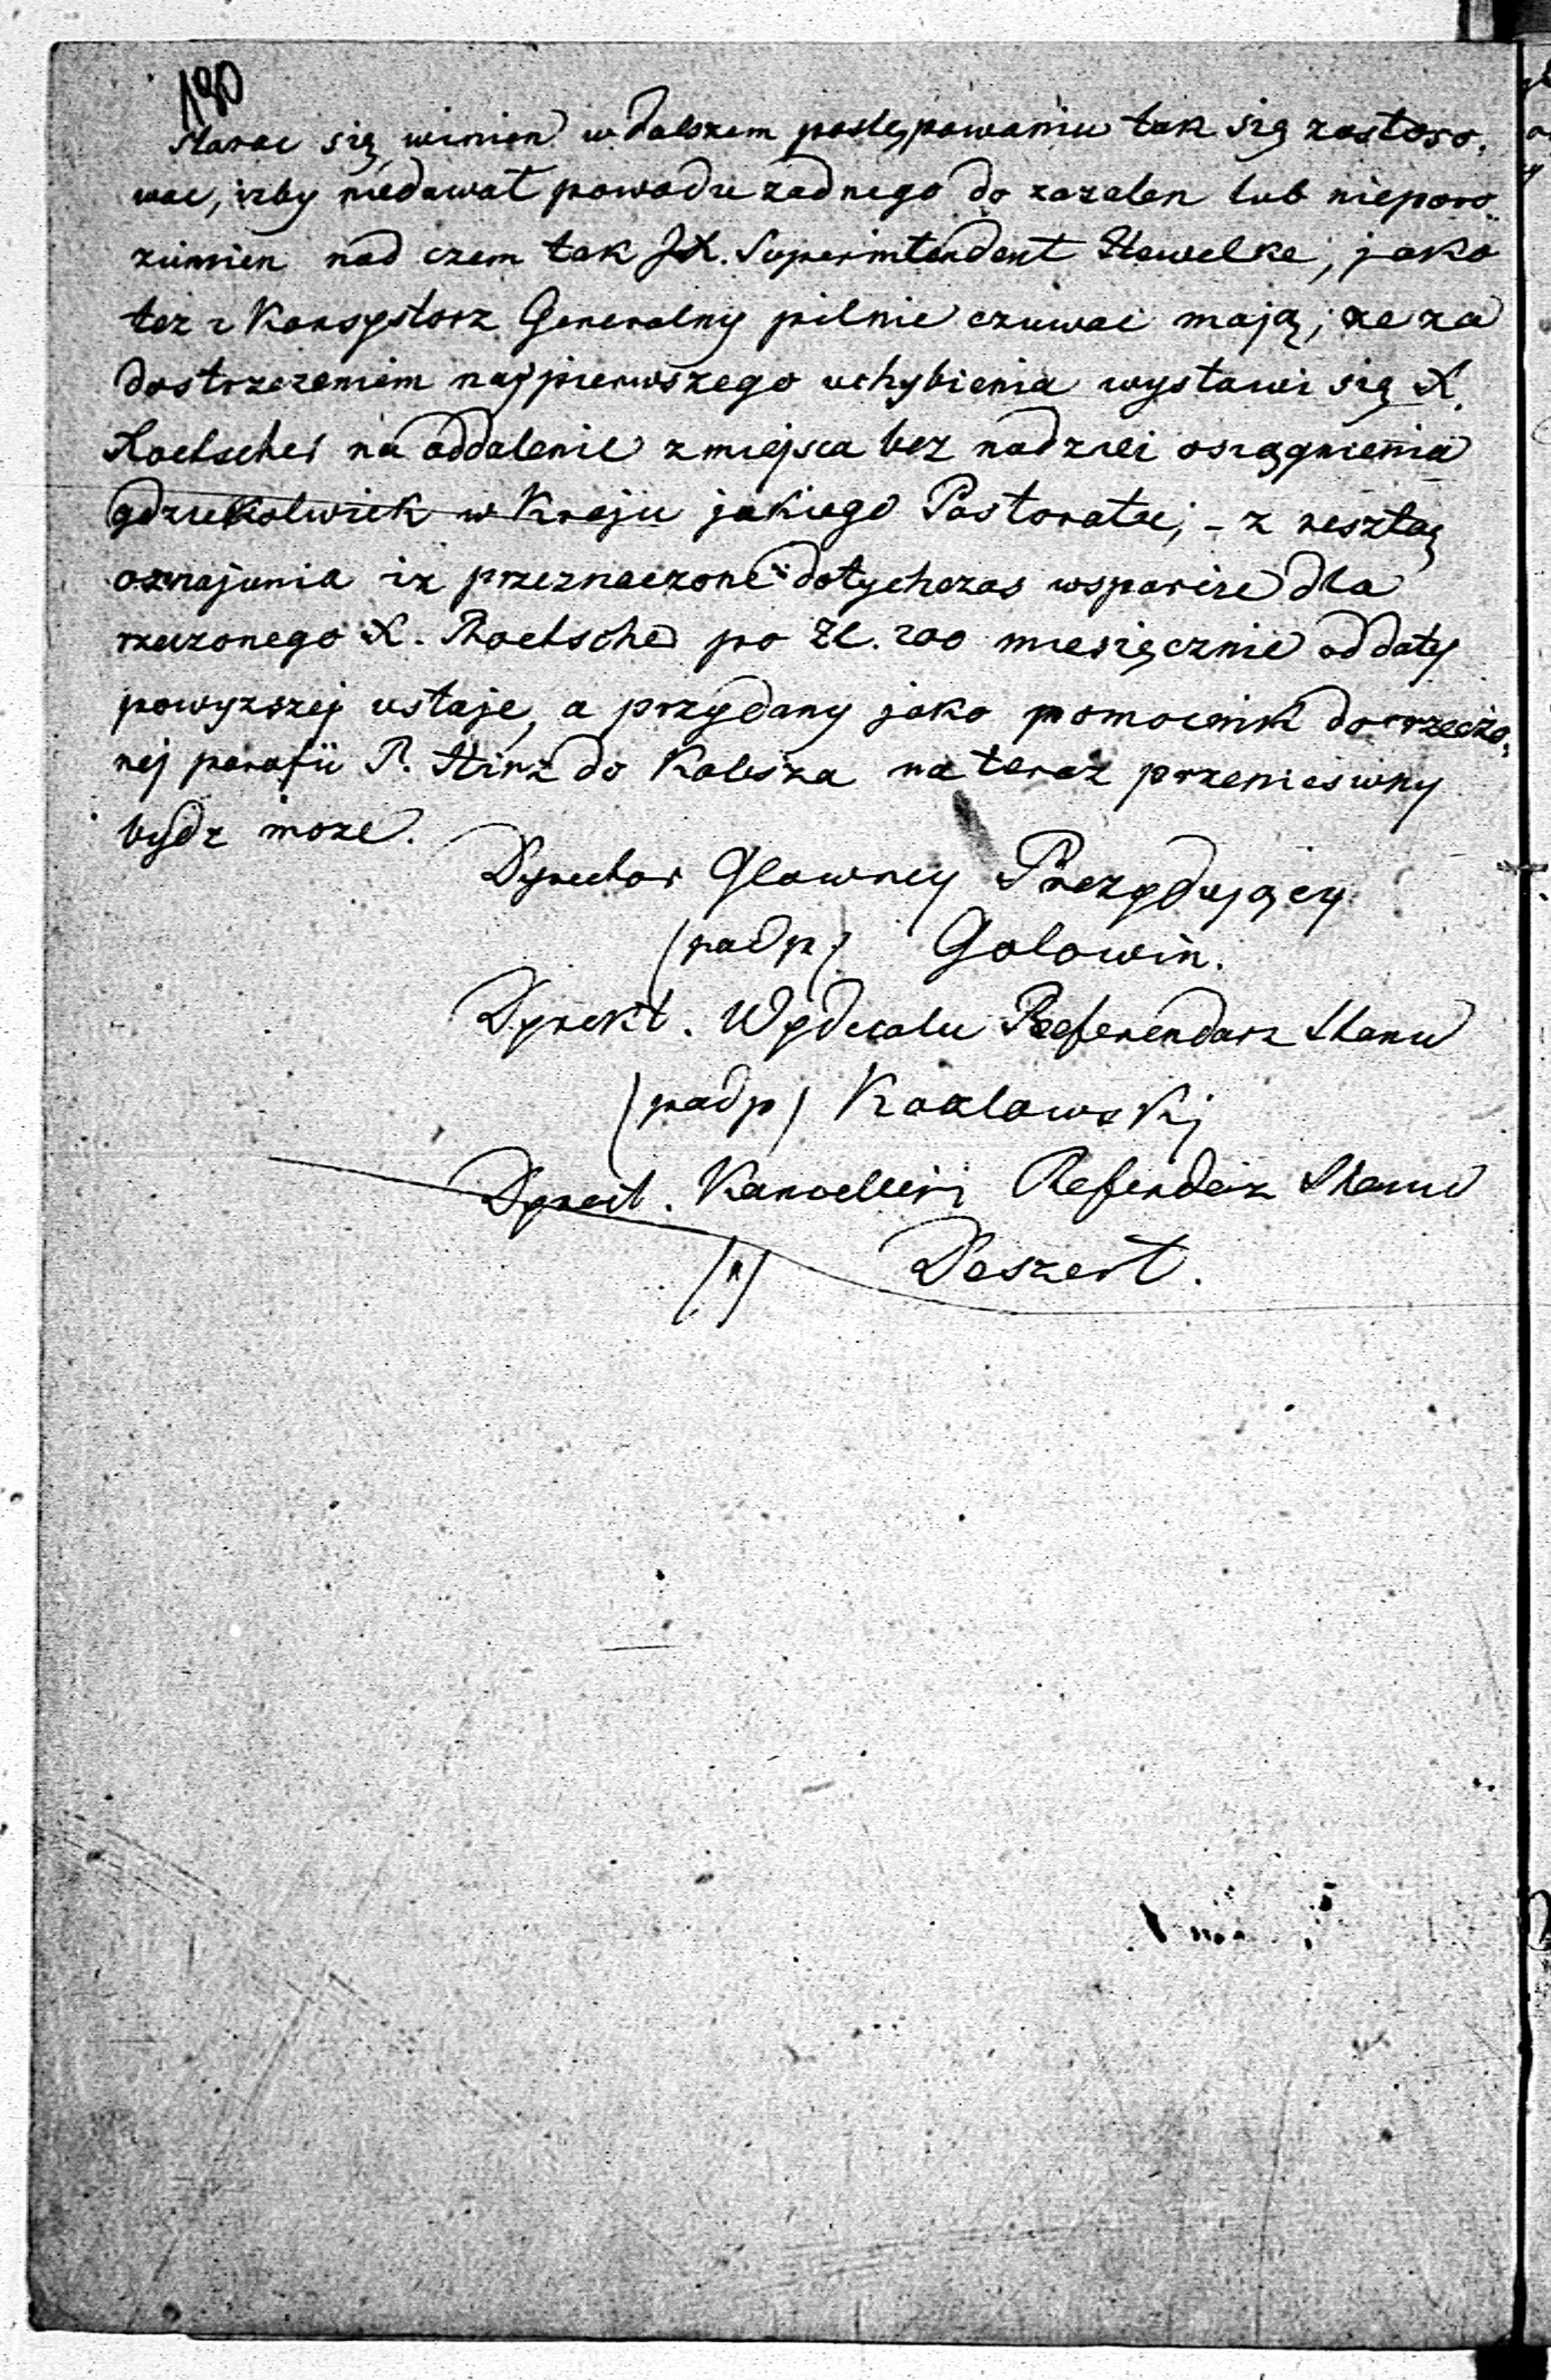 190
starac się winien w dalszem postępowaniu tak się zastoso,
wac, izby niedawał powodu zadnego do zazalen lub nieporo
zumien nad czem tak JX. Superintendent Hawelke, jako
tez i Konsystorz Generalny pilnie czuwac mają; ze za
dostrzezeniem najpierwszego uchybienia wystawi się X.
na oddalenie z miejsca bez nadziei osiągnienia
gdziekolwiek w Kraju jakiego Pastoratu; - z resztą
oznajmia iz przeznaczone dotychczas wsparcie dla
rzeczonego X. po Zł. 200 miesięcznie od daty
powyzszej ustaje, a przydany jako pomocnik do rzeczo,
nej parafii P. do Kalisza na teraz przeniesiony
bydz moze.
Dyrector Glowney Prezydujący
(podp) Golowin.
Dyrekt. Wydzialu Referendarz Stanu
(podp) Kozlowski
Dyrect. Kancellerii Referendarz Stanu
(p) Deszert.